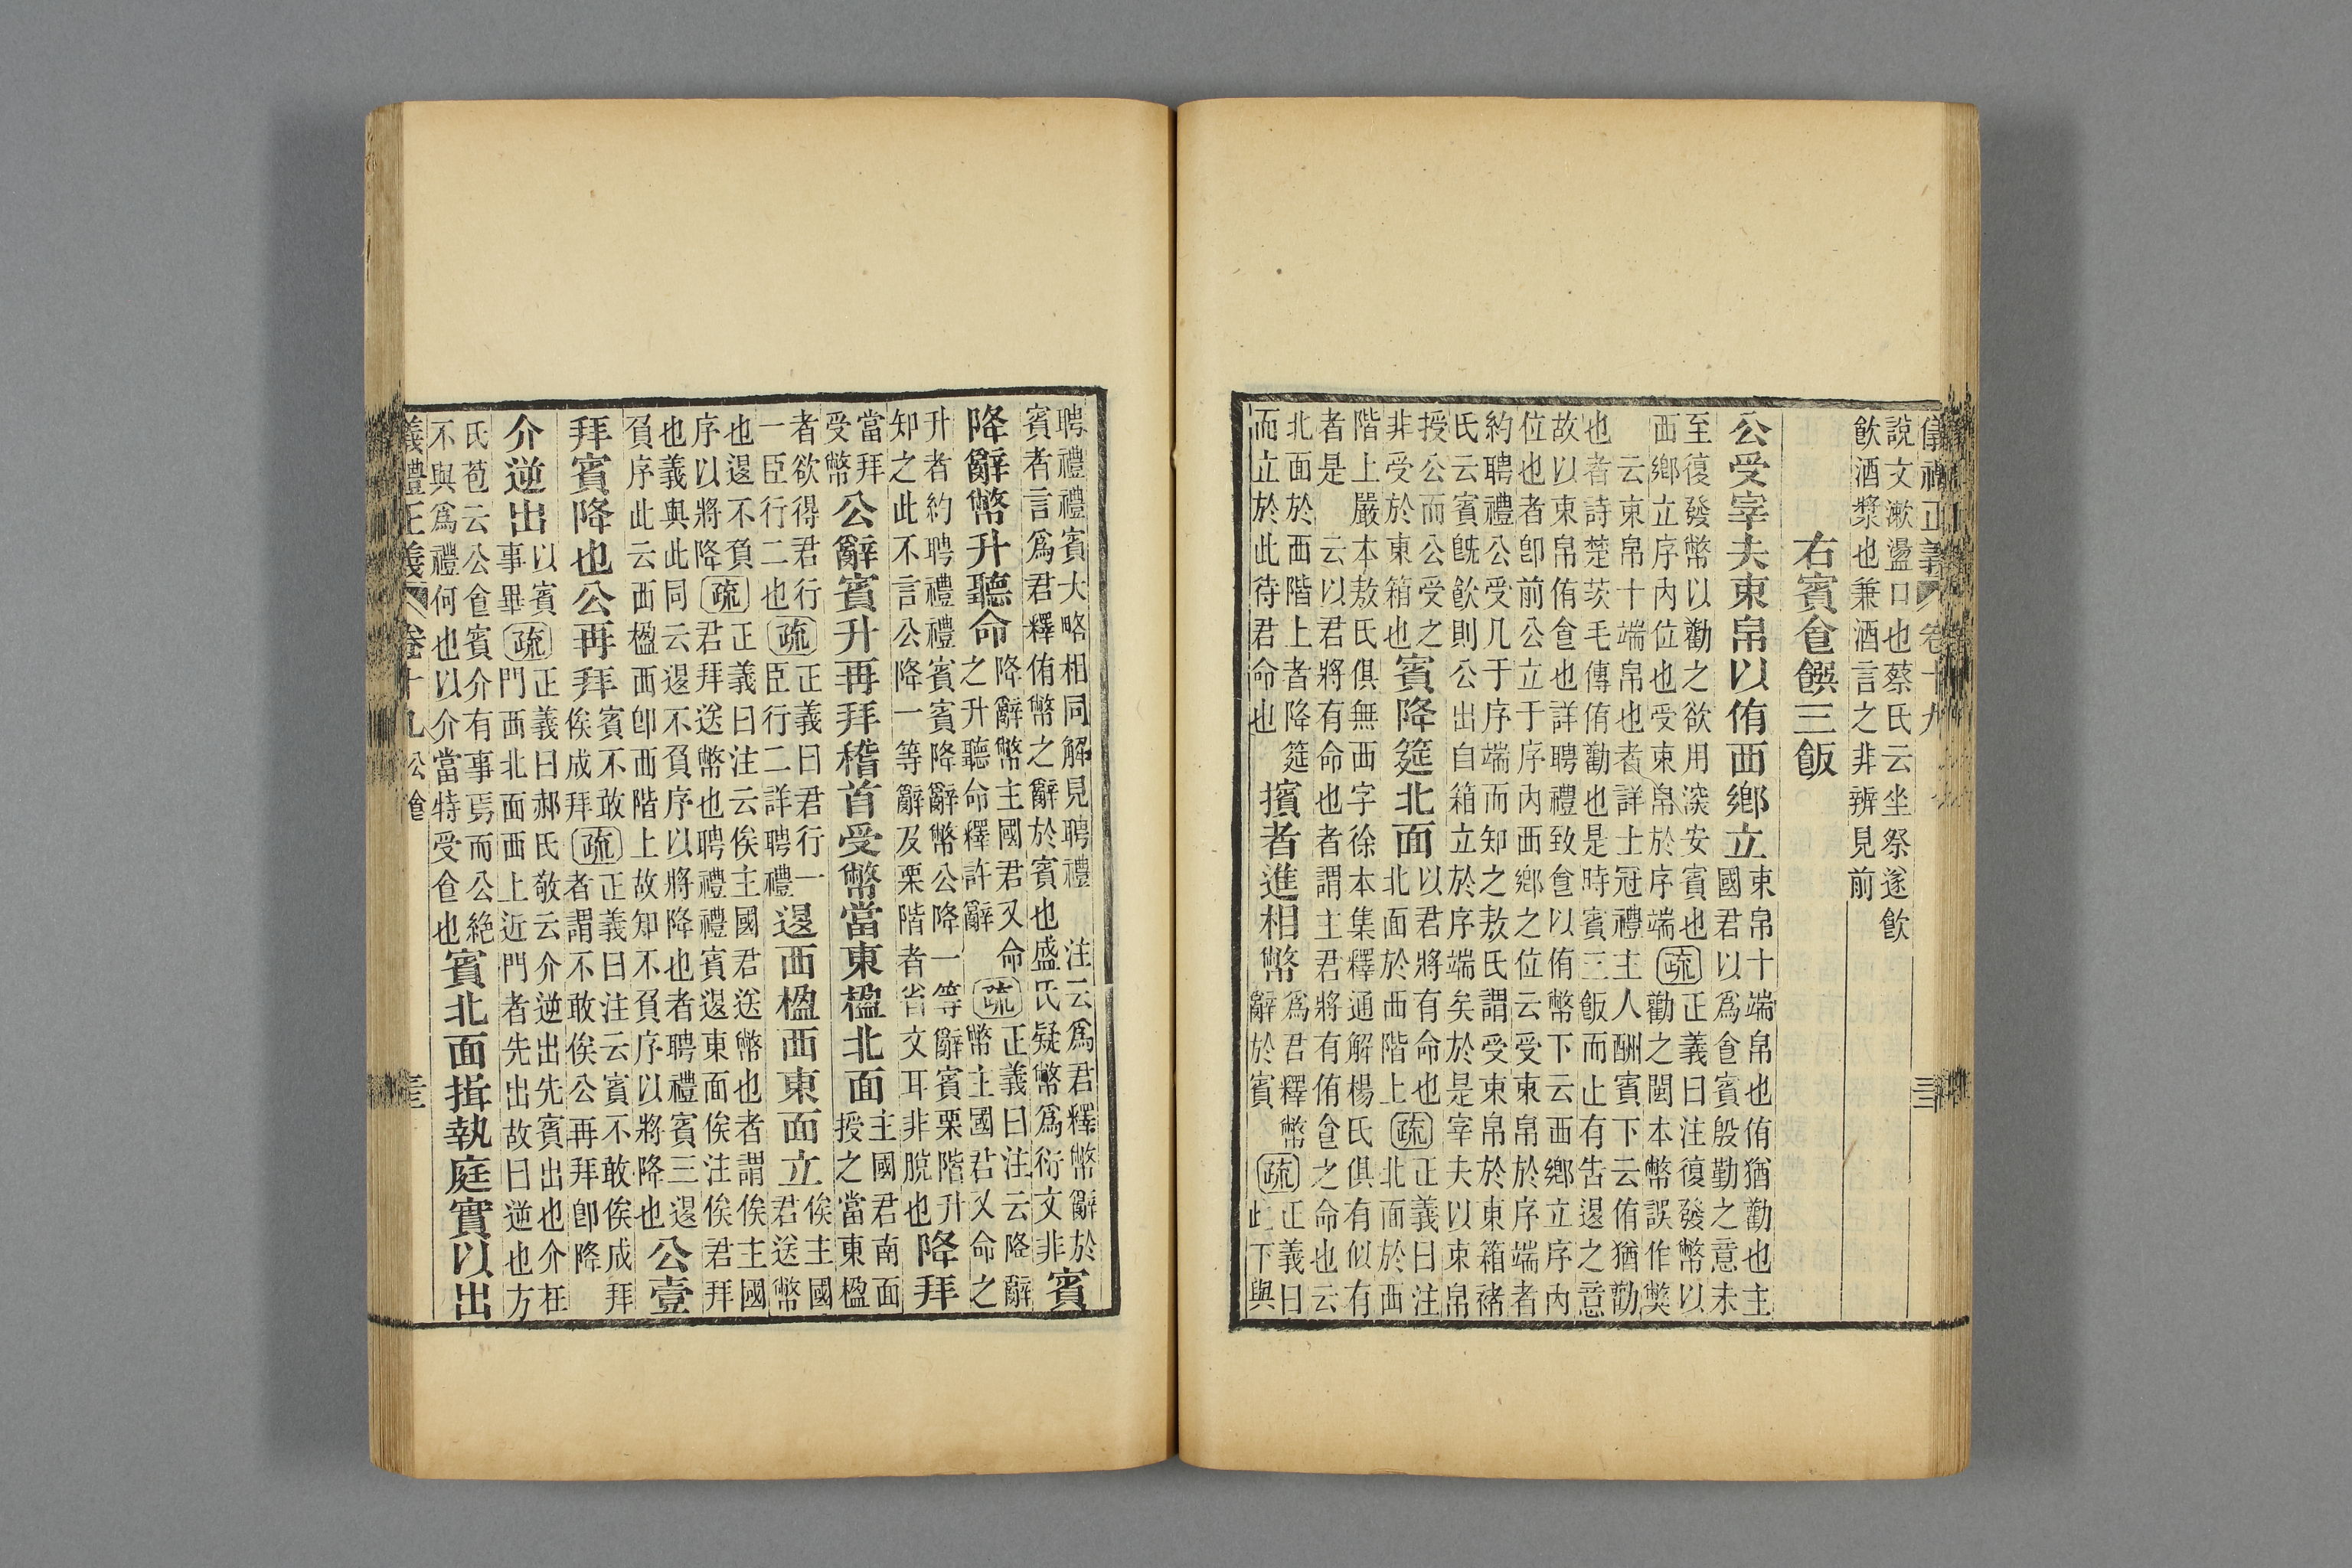 儀禮正義 卷十九
說文漱盪口也蔡氏云坐祭遂飮
飮酒漿也兼酒言之非辨見前
右賓食饌三飯
公受宰夫束帛以侑西鄉立
束帛十端帛也侑猶勸也主
國君以爲食賓殷勤之意未
至復發幣以勸之欲用深安賓也
西鄉立序內位也受束帛於序端
疏
正義曰注復發幣以
勸之閩本幣誤作獘
云束帛十端帛也者詳士冠禮主人酬賓下云侑猶勸
也者詩楚茨毛傳侑勸也是時賓三飯而止有告退之意
故以束帛侑食也詳聘禮致食以侑幣下云西鄉立序內
位也者卽前公立于序內西鄉之位云受束帛於序端者
約聘禮公受几于序端而知之敖氏謂受束帛於東箱褚
氏云賓旣飮則公出自箱立於序端矣於是宰夫以束帛
授公而公受之
非受於東箱也
賓降筵北面
以君將有命也
北面於西階上
疏
正義曰注
北面於西
階上嚴本敖氏俱無西字徐本集釋通解楊氏俱有似有
者是 云以君將有命也者謂主君將有侑食之命也云
北面於西階上者降筵
而立於此待君命也
擯者進相幣
爲君釋幣
辭於賓
疏
正義曰
此下與
聘禮禮賓大略相同解見聘禮 注云爲君釋幣辭於
賓者言爲君釋侑幣之辭於賓也盛氏疑幣爲衍文非
賓
降辭幣升聽命
降辭幣主國君又命
之升聽命釋許辭
疏
正義曰注云降辭
幣主國君又命之
升者約聘禮禮賓賓降辭幣公降一等辭賓栗階升
知之此不言公降一等辭及栗階者省文耳非脫也
降拜
當拜
受幣
公辭賓升再拜稽首受幣當東楹北面
主國君南面
授之當東楹
者欲得君行
一臣行二也
疏
正義曰君行一
臣行二詳聘禮
退西楹西東面立
俟主國
君送幣
也退不負
序以將降
疏
正義曰注云俟主國君送幣也者謂俟主國
君拜送幣也聘禮禮賓退東面俟注俟君拜
也義與此同云退不負序以將降也者聘禮賓三退
負序此云西楹西卽西階上故知不負序以將降也
公壹
拜賓降也公再拜
賓不敢
俟成拜
疏
正義曰注云賓不敢俟成拜
者謂不敢俟公再拜卽降
介逆出
以賓
事畢
疏
正義曰郝氏敬云介逆出先賓出也介在
門西北面西上近門者先出故曰逆也方
氏苞云公食賓介有事焉而公絕
不與爲禮何也以介當特受食也
賓北面揖執庭實以出
儀禮正義 卷十九 公食